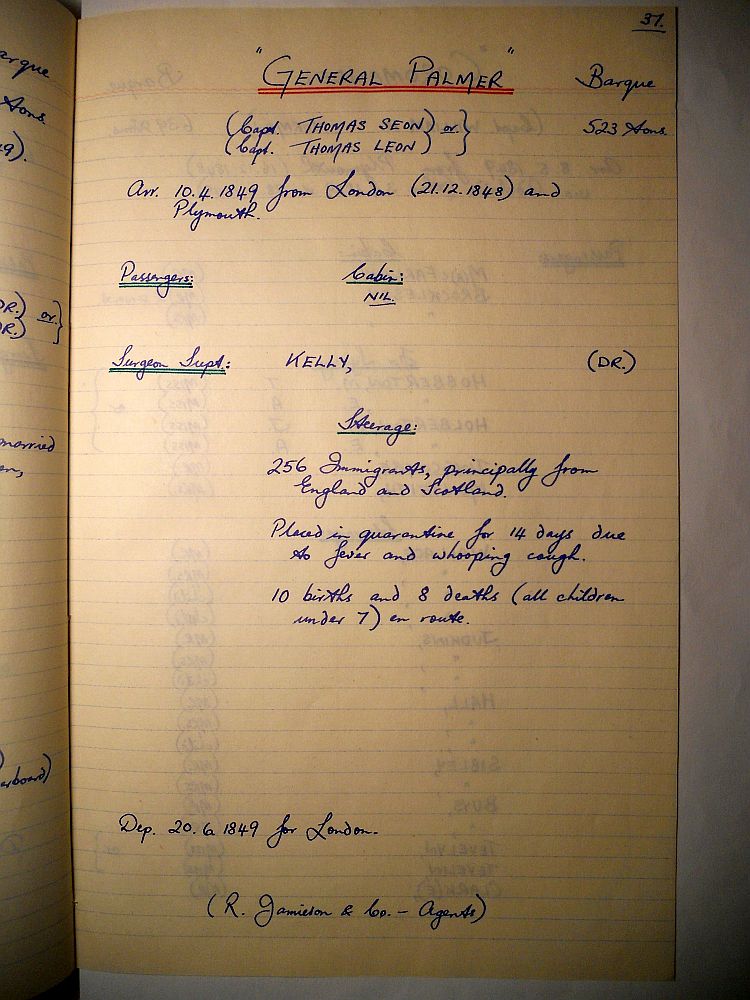 37.
"GENERAL PALMER" Barque
(Capt. THOMAS SEON) or } 523 tons.
(Capt. THOMAS LEON) }
Arr. 10.4.1849 from London (21.12.1848) and
Plymouth.
Passengers: Cabin:
NIL.
Surgeon Supt.: KELLY, (DR.)
Steerage:
256 Immigrants, principally from
England and Scotland.
Placed in quarantine for 14 days due
to fever and whooping cough.
10 births and 8 deaths (all children
under 7) en route.
Dep. 20.6.1849 for London.
(R. Jamieson & Co. - Agents)
arque
tons.
49).
DR.) or }
DR.) }
married